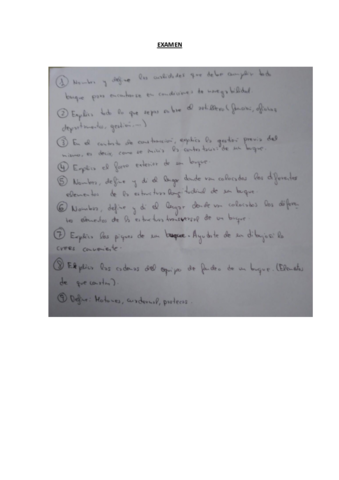 EXAMEN
① Nombra y define las cualidades que debe cumplir todo
buque para encontrarse en condiciones de navegabilidad.
② Explica todo lo que sepas sobre el astillero (funciones, oficinas
departamentos, gestión....)
③ En el contrato de construcción, explica la gestión previa del
mismo, es decir, como se inicia la contratación de un buque.
④ Explica el forro exterior de un buque
⑤ Nombra, define y di el lugar donde van colocados los diferentes
elementos de la estructura longitudinal de un buque
⑥ Nombra, define y di el lugar donde van colocados los diferen
elementos de la estructura transversal de un buque
⑦ Explica los piques de un buque. Ayúdate de un dibujo si lo
crees conveniente.
⑧ Explica las cadenas del equipo de fondeo de un buque (Elementos
de que consta).
⑨ Define: Mamparos, cuadernal, porteros